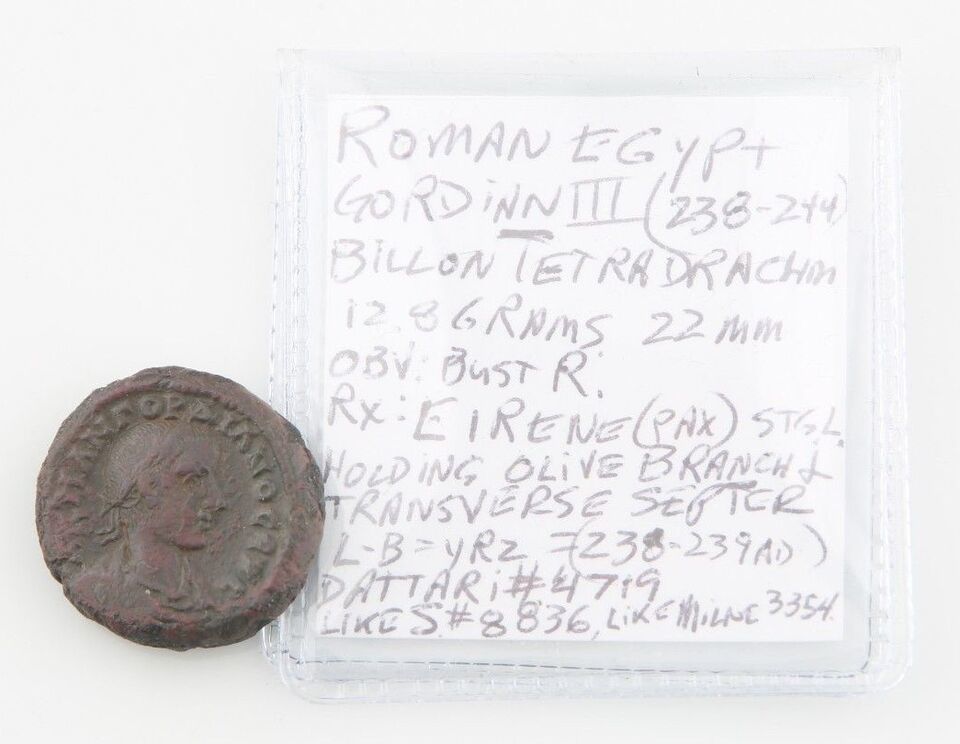 ROMAN EGYPT
GORDiNN III (238-244)
BILLON TETRADRACHM
12.8 GRAMS 22 mm
OBV: BUST R.
Rx: EIRENE (PAX) STG L.
HOLDING OLIVE BRANCH &
TRANSVERSE SEPTER
L-B = YR2 = (238-239 AD)
DATTARi # 4719
LIKE S. # 8836, LIKE MILNE 3354.
ΓΟΡΔΙΑΝΟC